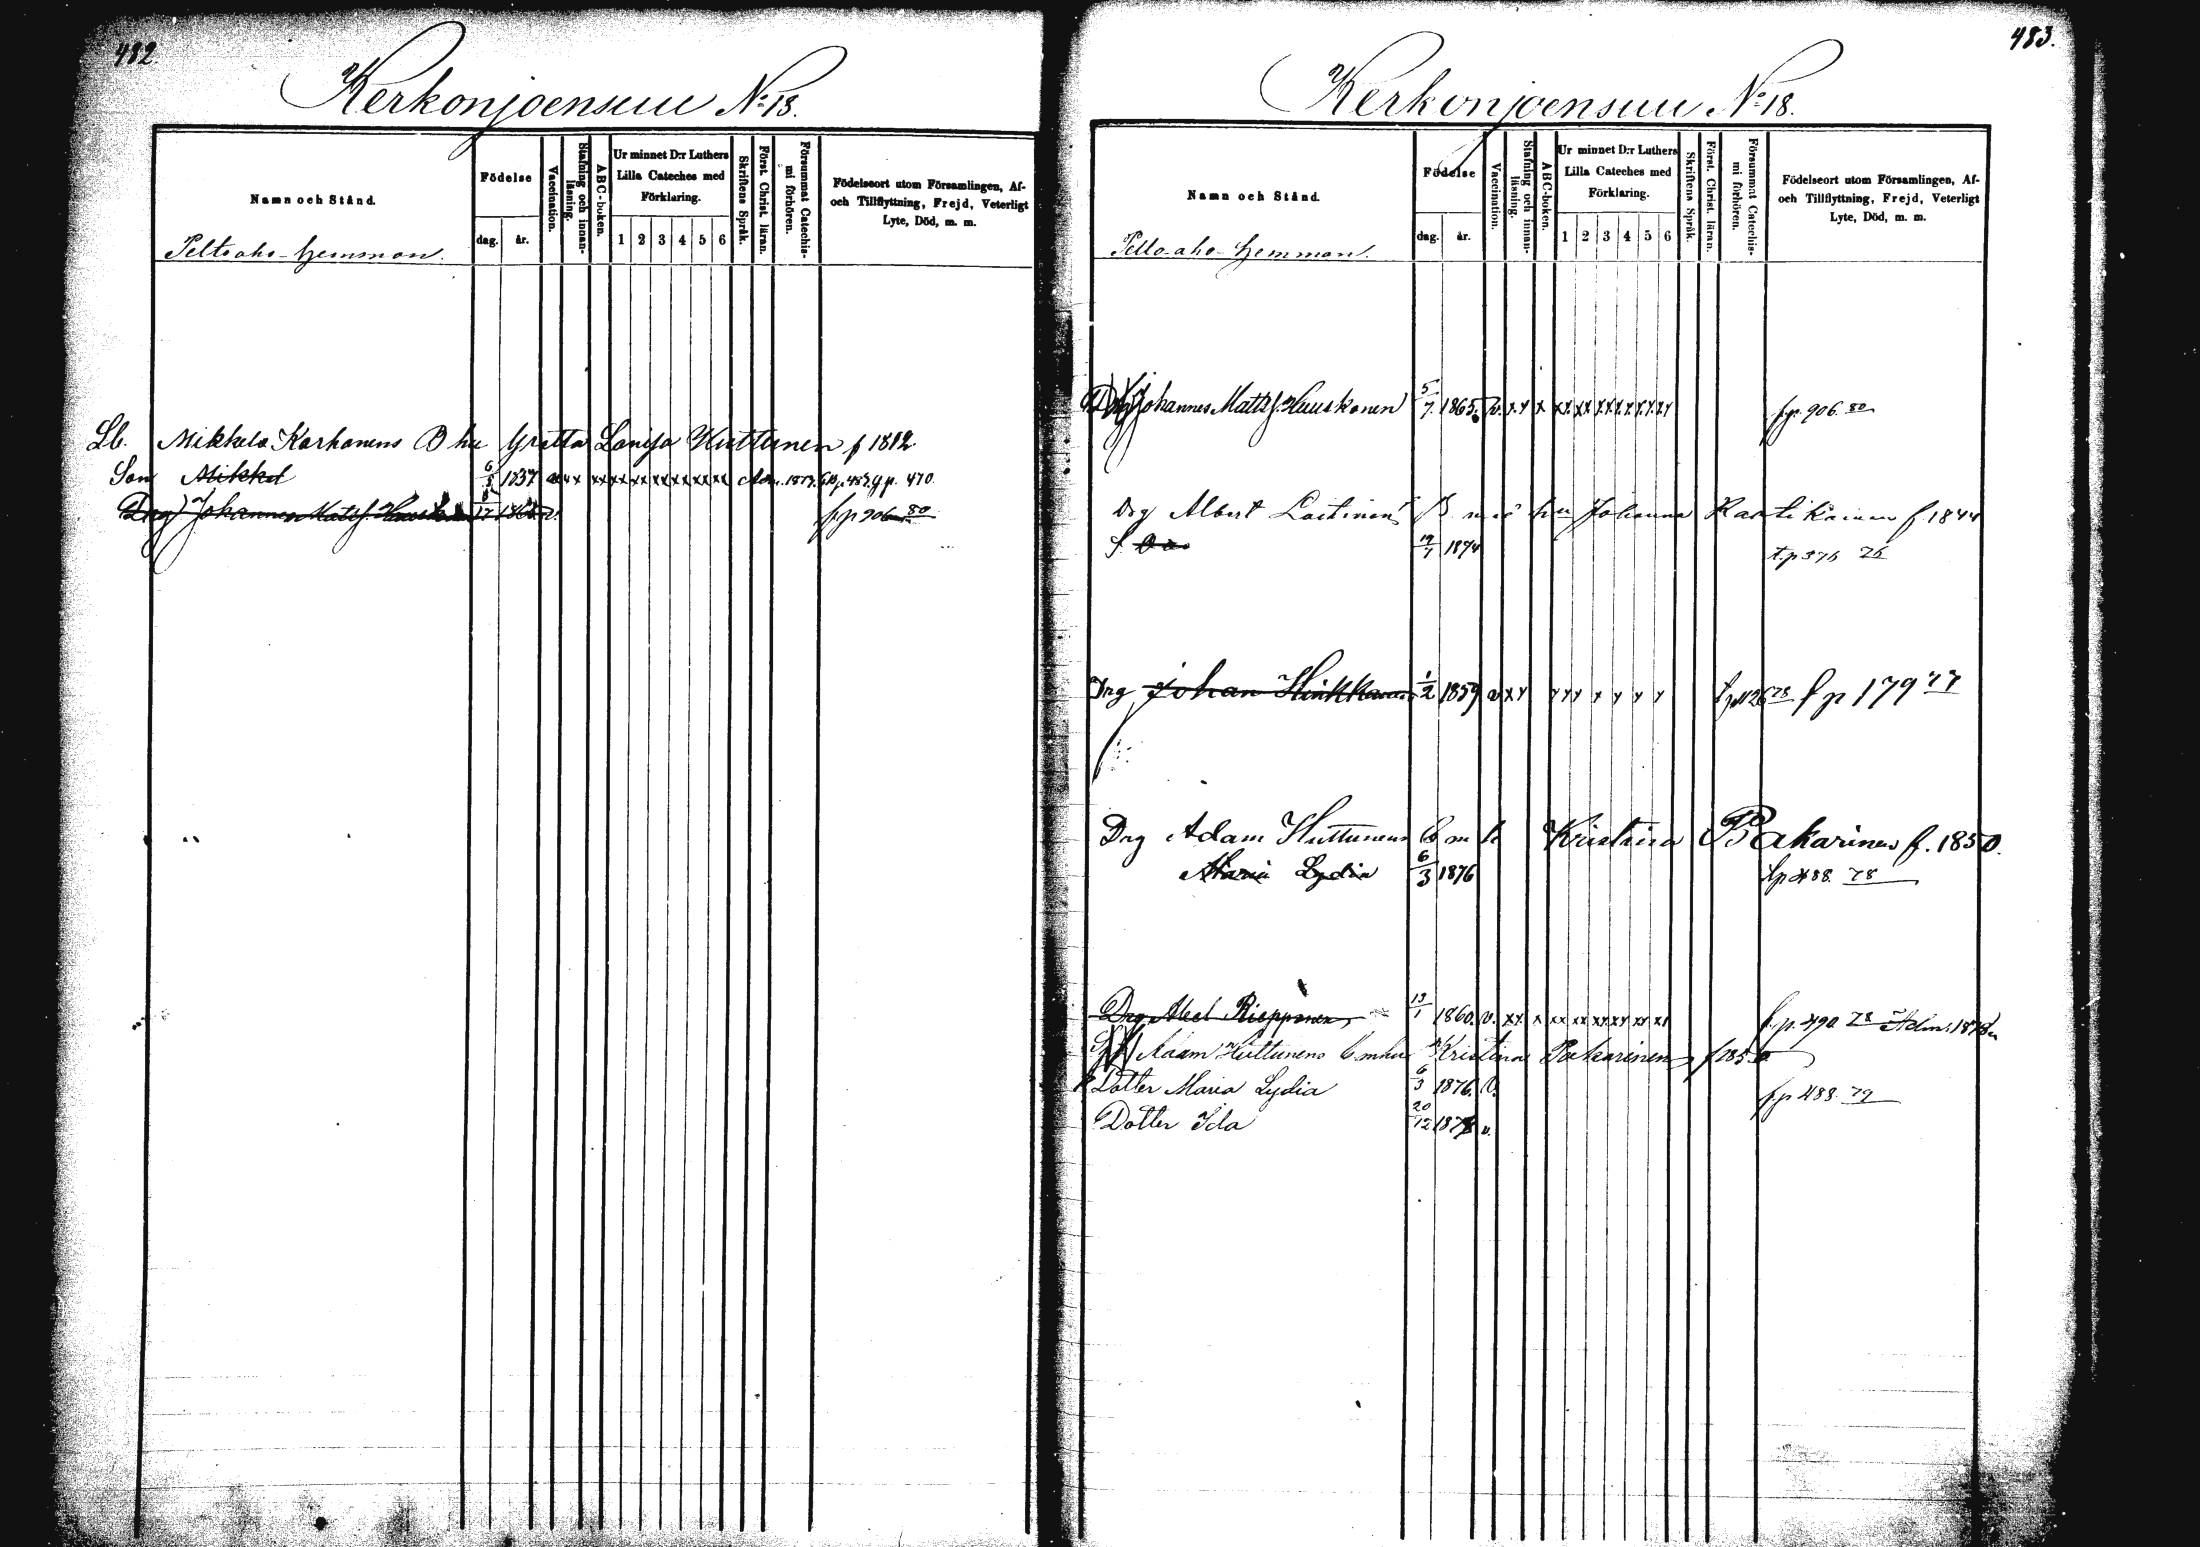 482.
Kerkonjoensuu No: 18.
Namn och Stånd.
Födelse
dag.
år.
Vaccination.
Stafning och innan-
läsning.
ABC-boken.
Ur minnet D:r Luthers
Lilla Cateches med
Förklaring.
1 2 3 4 5 6
Skriftens Språk.
Först. Christ. läran.
Försummat Catechis-
mi förhören.
Födelseort utom Församlingen, Af-
och Tillflyttning, Frejd, Veterligt
Lyte, Död, m. m.
Pelto aho-hemman.
Lb. Mikkel Karhonens hu Gretta Lovisa Huttunen f 1812
Son Mikkel 6/5 1837 x x xx xx xx xx xx xx xx Adm. 1879. p. 470.
Drg Johannes Matts. Huuskonen 1865 v. f.p 906 80
483.
Kerkonjoensuu No: 18.
Namn och Stånd.
Födelse
dag.
år.
Vaccination.
Stafning och innan-
läsning.
ABC-boken.
Ur minnet D:r Luthers
Lilla Cateches med
Förklaring.
1 2 3 4 5 6
Skriftens Språk.
Först. Christ. läran.
Försummat Catechis-
mi förhören.
Födelseort utom Församlingen, Af-
och Tillflyttning, Frejd, Veterligt
Lyte, Död, m. m.
Pelto-aho-hemman.
Drg Johannes Matts. Huuskonen 5/7 1865. v. x x x xx xx xx xx xx xx f.p. 906. 80
Drg Albert Laitinens hu Johanna f 1844
1874 t.p 376 76
Drg Johan Hinkkanen 1/2 1859 v x x x x x x x x x f p 179 77
Drg Adam Huttunens b m h Kristina Pakarinen f. 1850.
Maria Lydia 6/3 1876 f.p 488. 78
Drg Abel Riepponen 13/1 1860. v. xx x xx xx xx xx xx xx f.p. 490 78 Adm: 1878
Adam Huttunens b m hu Kristina Pakarinen f 1850
Dotter Maria Lydia 6/3 1876. v. f.p 488. 79
Dotter Ida 20/12 1878 v.